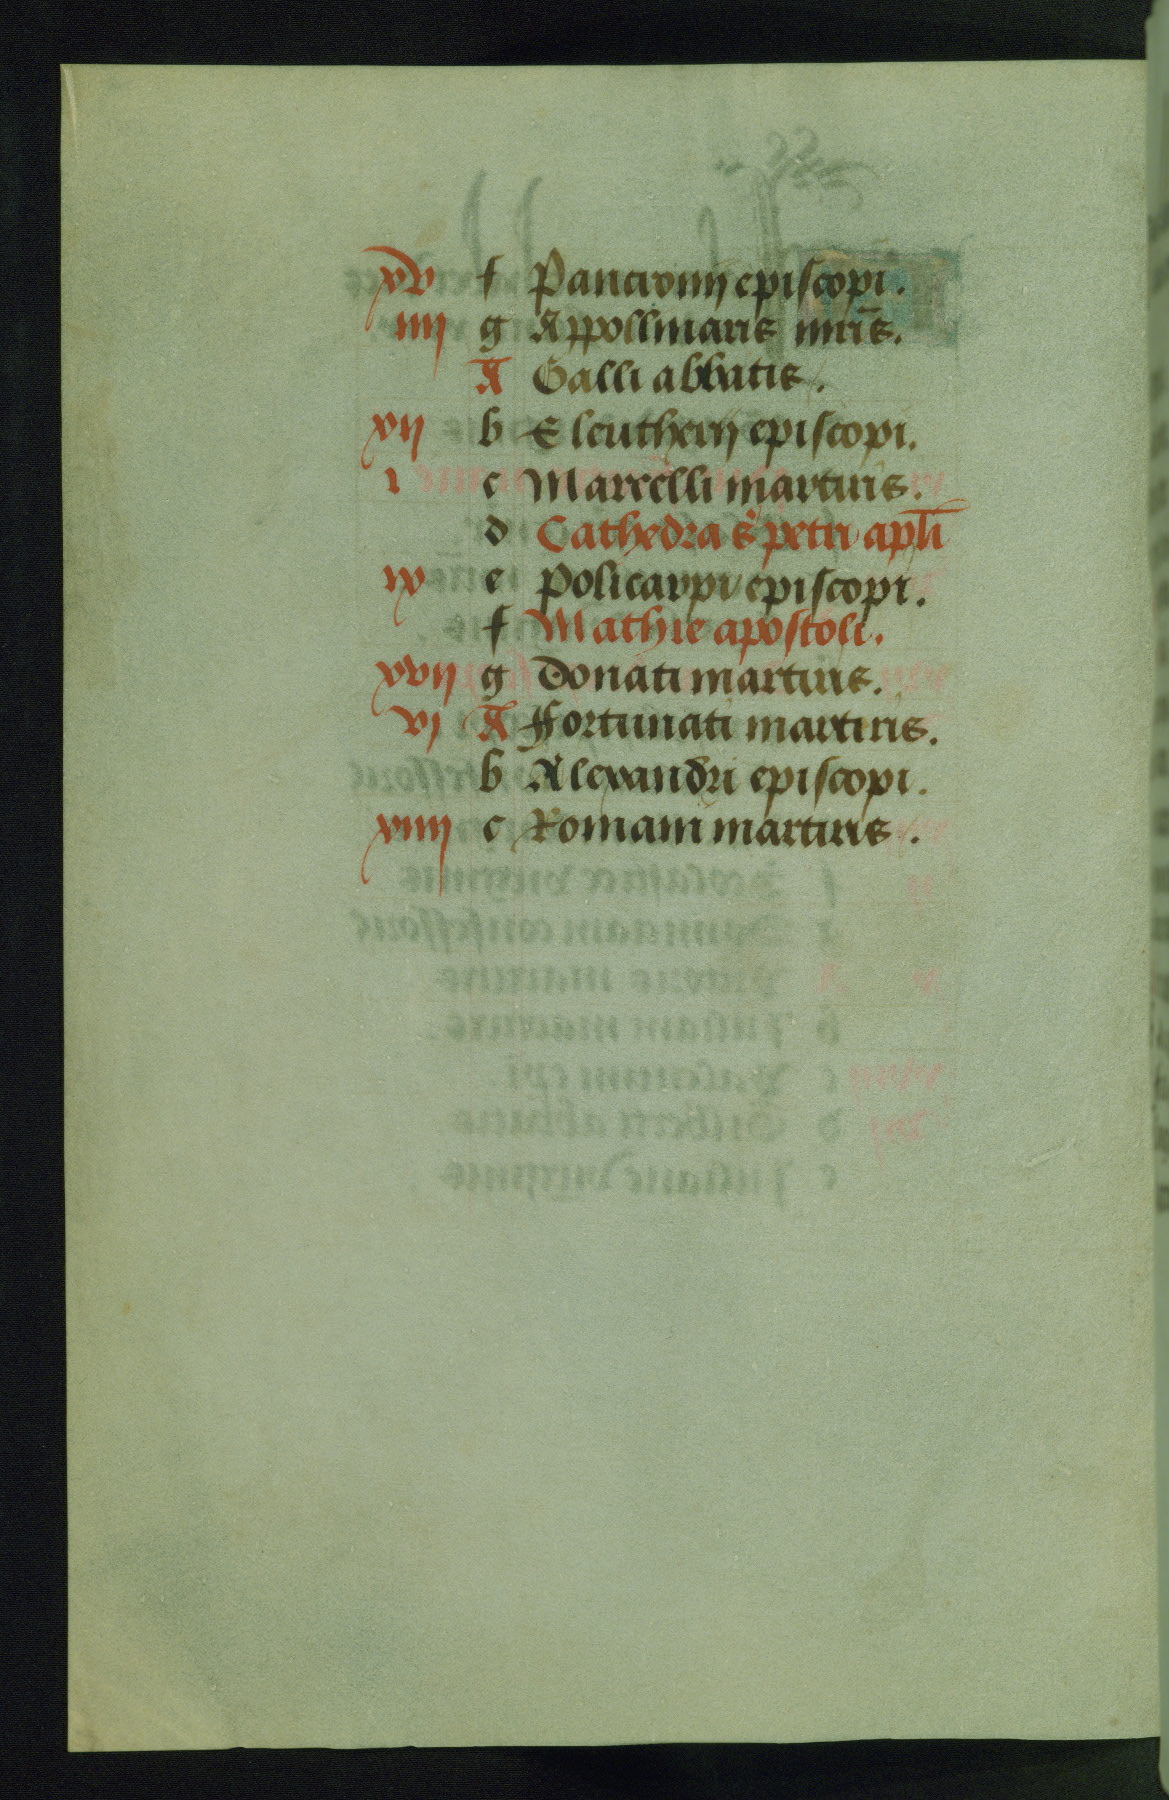 xv f Pancronij episcopi.
iiii g Appollinaris mr̄is.
A Galli abbatis.
xii b Eleutherij episcopi.
i c Marcelli martiris.
d Cathedra s̄ petri apl̄i
ix e Policarpi episcopi.
f Mathie apostoli.
xvii g Donati martiris.
vi A Ffortunati martiris.
b Alexandri episcopi.
xiiii c Romani martiris.